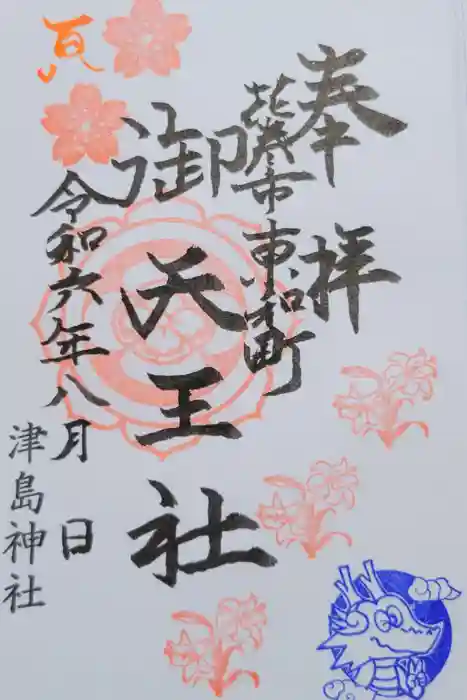 奉拝
藤市東和町
御天王社
令和六年八月 日
津島神社